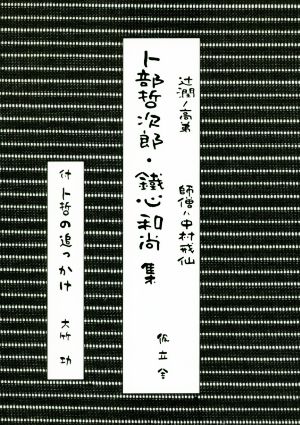 辻潤ノ高弟
師僧ハ中村戒仙
卜部哲次郎・鐵心和尚 集
仮立舎
付 卜哲の追っかけ 大竹 功